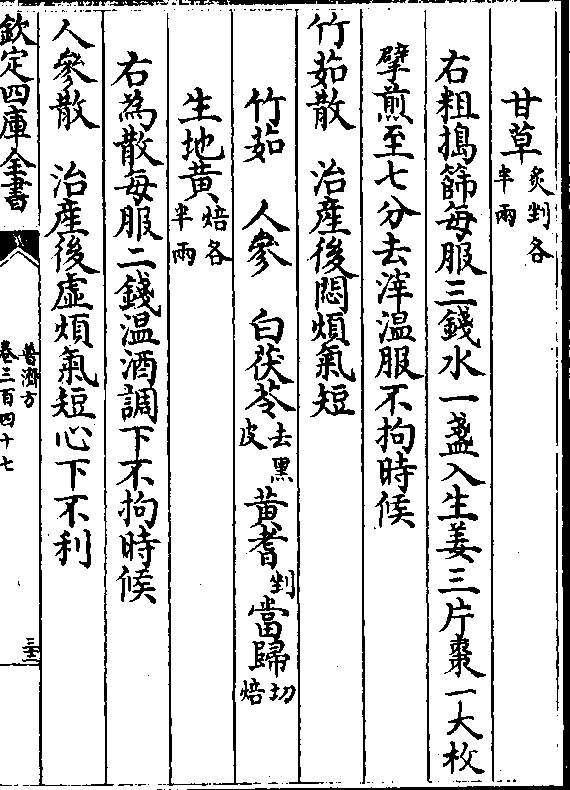 甘草炙剉各半兩
右粗搗篩每服三錢水一盞入生姜三片棗一大枚
擘煎至七分去滓温服不拘時候
竹茹散　治産後悶煩氣短
竹茹　人參　白茯苓去黑皮　黄耆剉　當歸切焙
生地黄焙各半兩
右為散每服二錢温酒調下不拘時候
人參散　治産後虚煩氣短心下不利
欽定四庫全書
普濟方
卷三百四十七